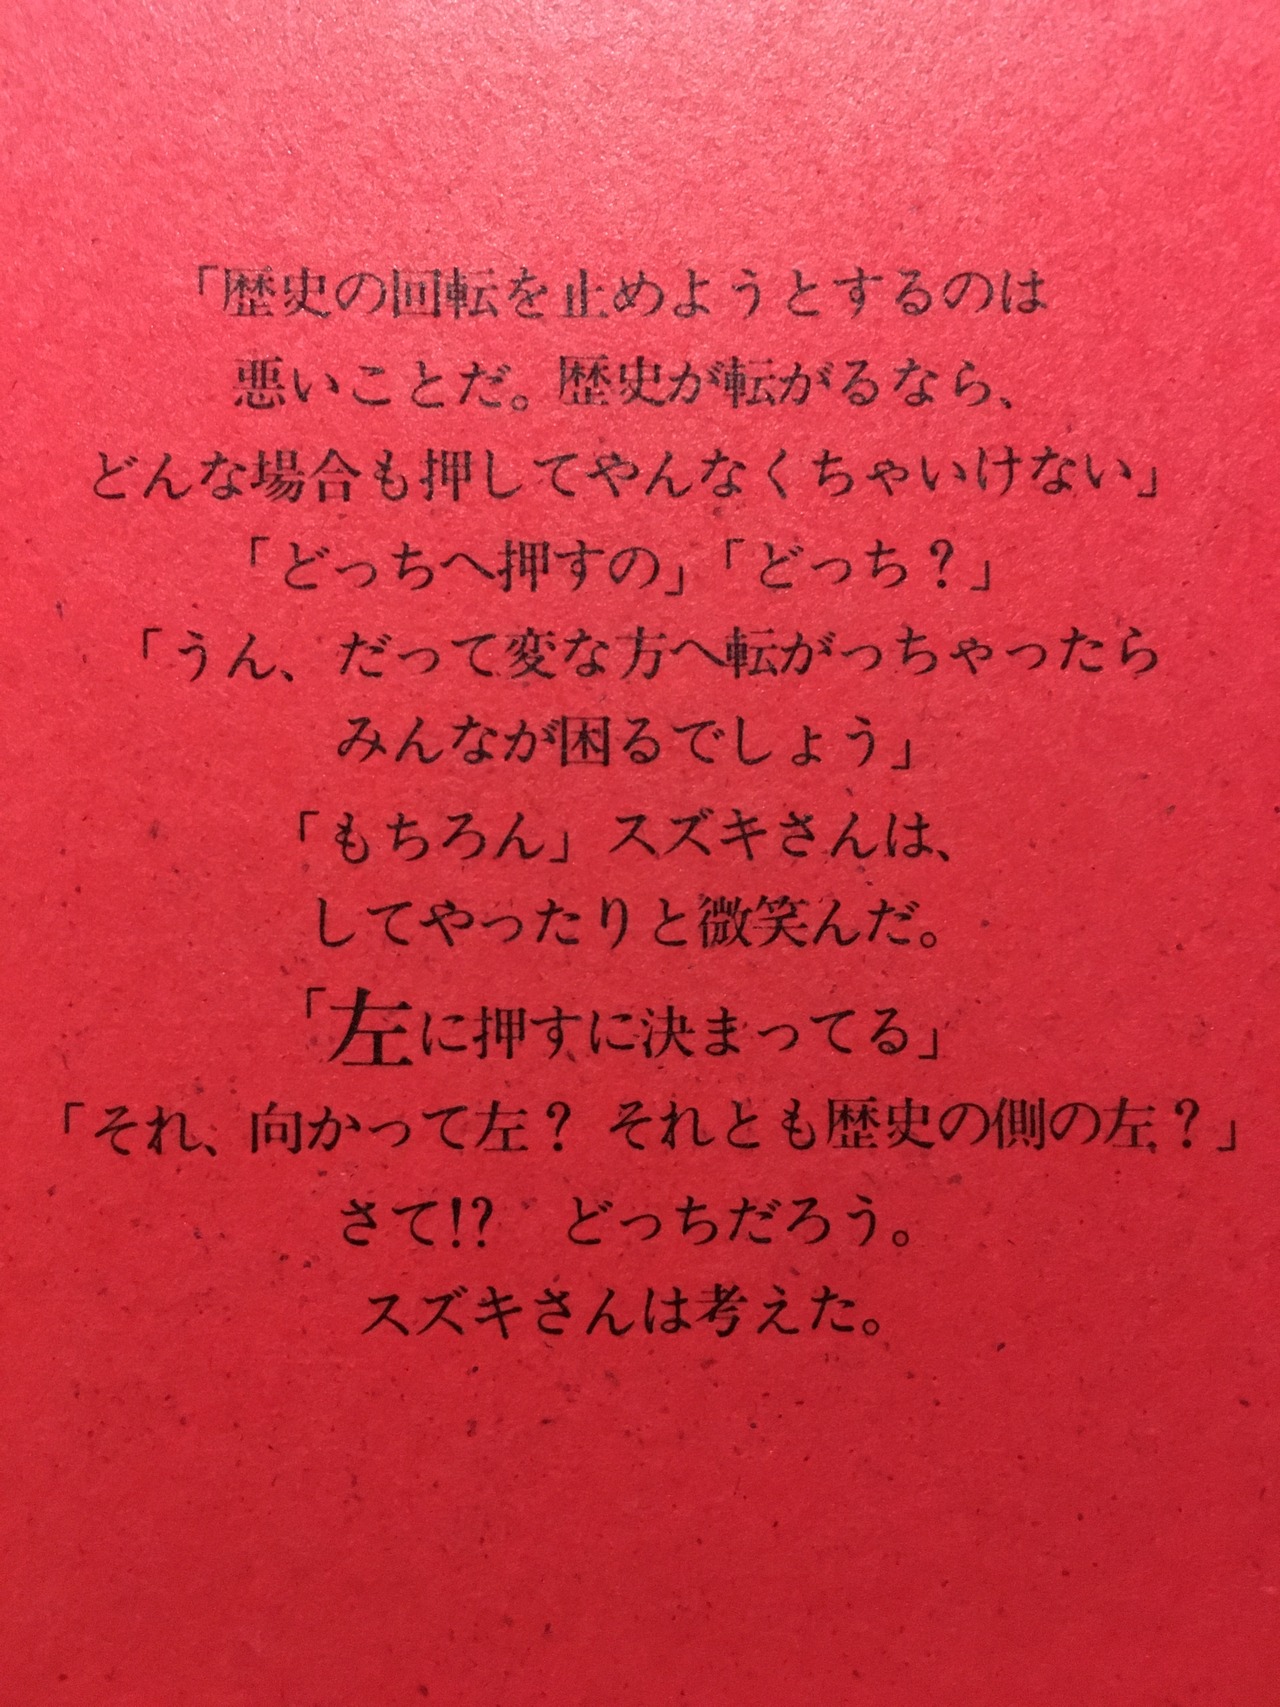 「歴史の回転を止めようとするのは
悪いことだ。歴史が転がるなら、
どんな場合も押してやんなくちゃいけない」
「どっちへ押すの」「どっち？」
「うん、だって変な方へ転がっちゃったら
みんなが困るでしょう」
「もちろん」スズキさんは、
してやったりと微笑んだ。
「左に押すに決まってる」
「それ、向かって左？ それとも歴史の側の左？」
さて!?　どっちだろう。
スズキさんは考えた。